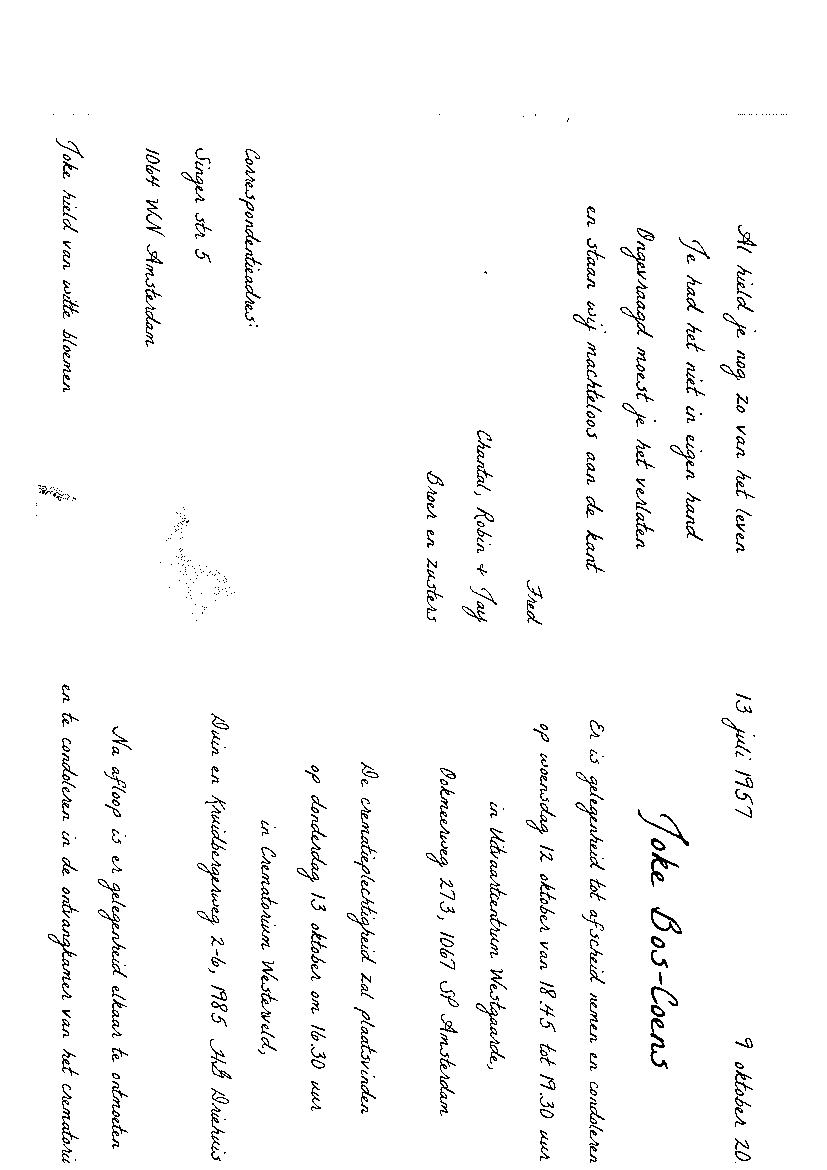 Al hield je nog zo van het leven
Je had het niet in eigen hand
Ongevraagd moest je het verlaten
en staan wij machteloos aan de kant
Fred
Chantal, Robin + Jay
Broer en zusters
Correspondentieadres:
Singer str 5
1064 WN Amsterdam
Joke hield van witte bloemen
13 juli 1957
9 oktober 20
Joke Bos-Coens
Er is gelegenheid tot afscheid nemen en condoleren
op woensdag 12 oktober van 18.45 tot 19.30 uur
in Uitvaartcentrum Westgaarde,
Ookmeerweg 273, 1067 SP Amsterdam
De crematieplechtigheid zal plaatsvinden
op donderdag 13 oktober om 16.30 uur
in Crematorium Westerveld,
Duin en Kruidbergerweg 2-6, 1985 HG Driehuis
Na afloop is er gelegenheid elkaar te ontmoeten
en te condoleren in de ontvangkamer van het crematori